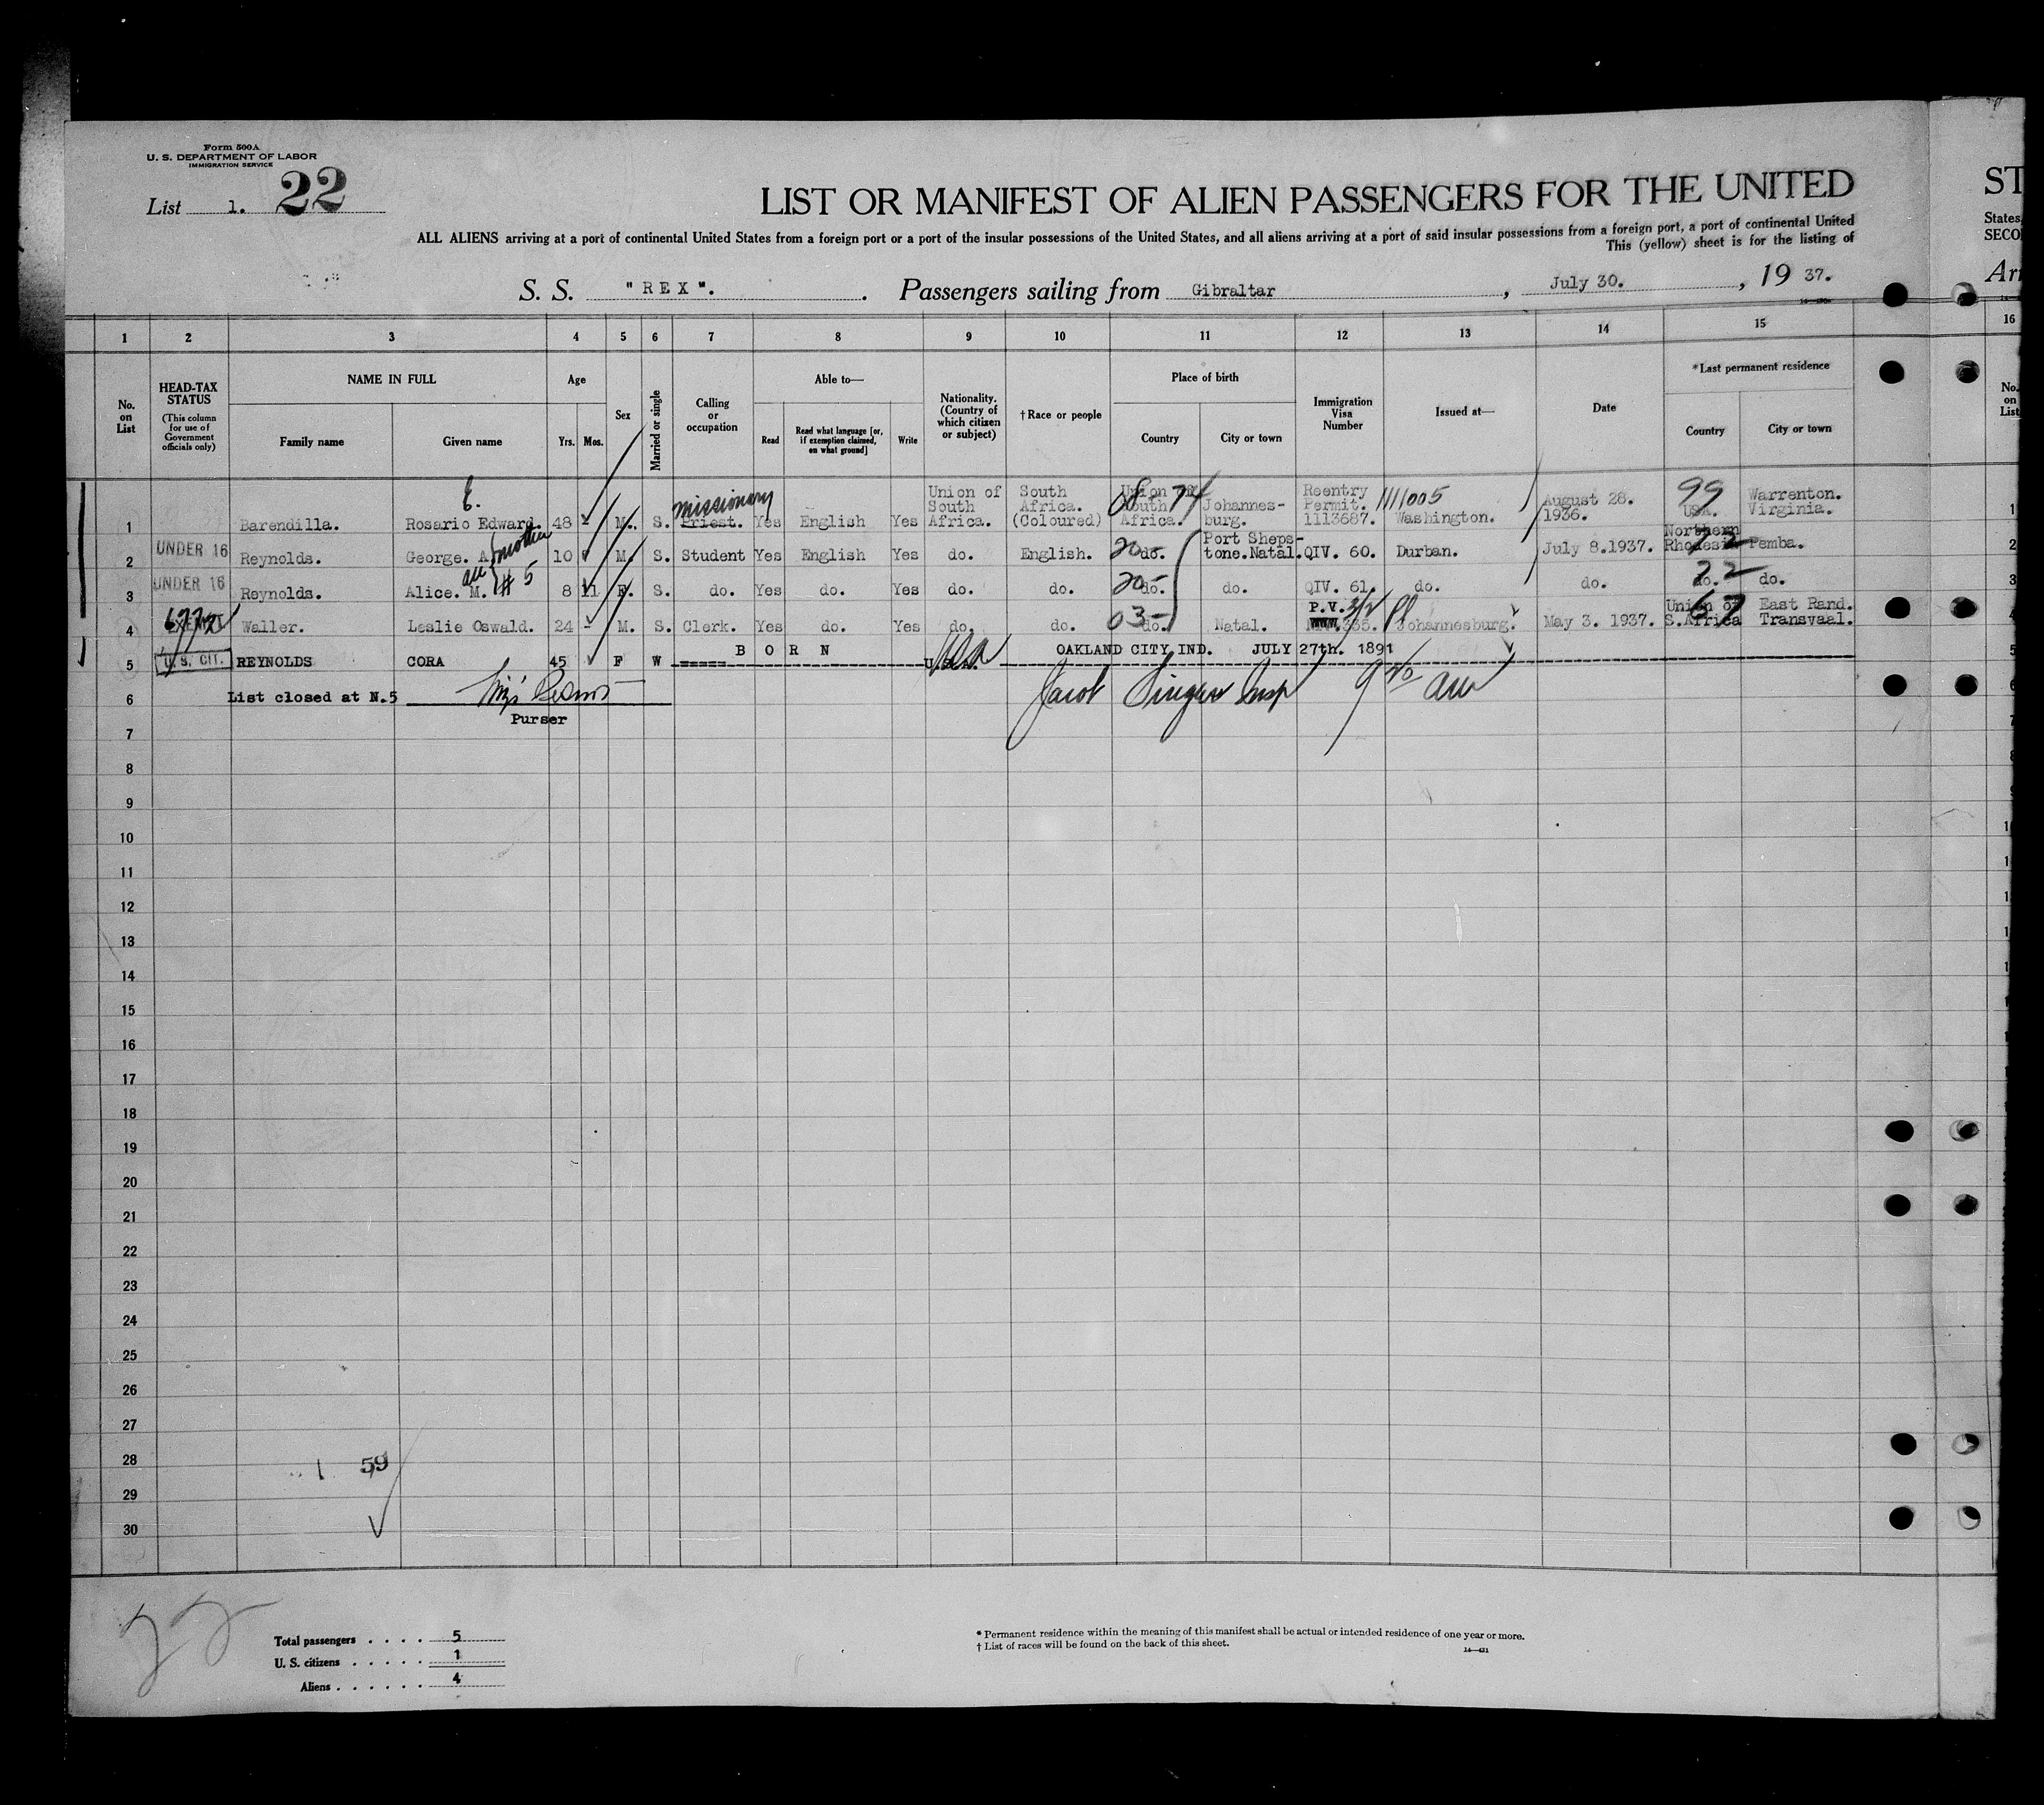 Form 500A
U. S. DEPARTMENT OF LABOR
IMMIGRATION SERVICE
List 1. 22
LIST OR MANIFEST OF ALIEN PASSENGERS FOR THE UNITED
ST
ALL ALIENS arriving at a port of continental United States from a foreign port or a port of the insular possessions of the United States, and all aliens arriving at a port of said insular possessions from a foreign port, a port of continental United
States,
This (yellow) sheet is for the listing of
SECO
S. S. "REX". Passengers sailing from Gibraltar, July 30., 19 37.
Arr
1 2 3 4 5 6 7 8 9 10 11 12 13 14 15 16
No. on List
HEAD-TAX STATUS (This column for use of Government officials only)
NAME IN FULL
Family name Given name
Age
Yrs. Mos.
Sex
Married or single
Calling or occupation
Able to—
Read Read what language [or, if exemption claimed, on what ground] Write
Nationality. (Country of which citizen or subject)
†Race or people
Place of birth
Country City or town
Immigration Visa Number
Issued at—
Date
*Last permanent residence
Country City or town
No. on List
1 Barendilla. E. Rosario Edward. 48 - M. S. missionary Priest. Yes English Yes Union of South Africa. South Africa. (Coloured) Union of South Africa. 0874 Johannes-burg. Reentry Permit. 1113687. 1111005 Washington. August 28. 1936. 99 USA. Warrenton. Virginia. 1
2 UNDER 16 Reynolds. George. A. mother 10 M. S. Student Yes English Yes do. English. do. 20- Port Sheps-tone.Natal. QIV. 60. Durban. July 8.1937. Northern Rhodesia 22 Pemba. 2
3 UNDER 16 Reynolds. Alice. M. # 5 8 11 F. S. do. Yes do. Yes do. do. do. 20- do. QIV. 61. do. do. do. 22 do. 3
4 EXEMPT Waller. Leslie Oswald. 24 - M. S. Clerk. Yes do. Yes do. do. do. 03- Natal. P.V. 3/2 335. Johannesburg. May 3. 1937. Union of S.Africa 67 East Rand. Transvaal. 4
5 U. S. CIT. REYNOLDS CORA 45 F W BORN OAKLAND CITY IND. JULY 27th. 1891 5
6 List closed at N.5 Jacob Insp 6
Purser
7
8
9
10
11
12
13
14
15
16
17
18
19
20
21
22
23
24
25
26
27
28 1 59
29
30
22
Total passengers . . . . 5
U. S. citizens . . . . . 1
Aliens . . . . . . 4
* Permanent residence within the meaning of this manifest shall be actual or intended residence of one year or more.
† List of races will be found on the back of this sheet.